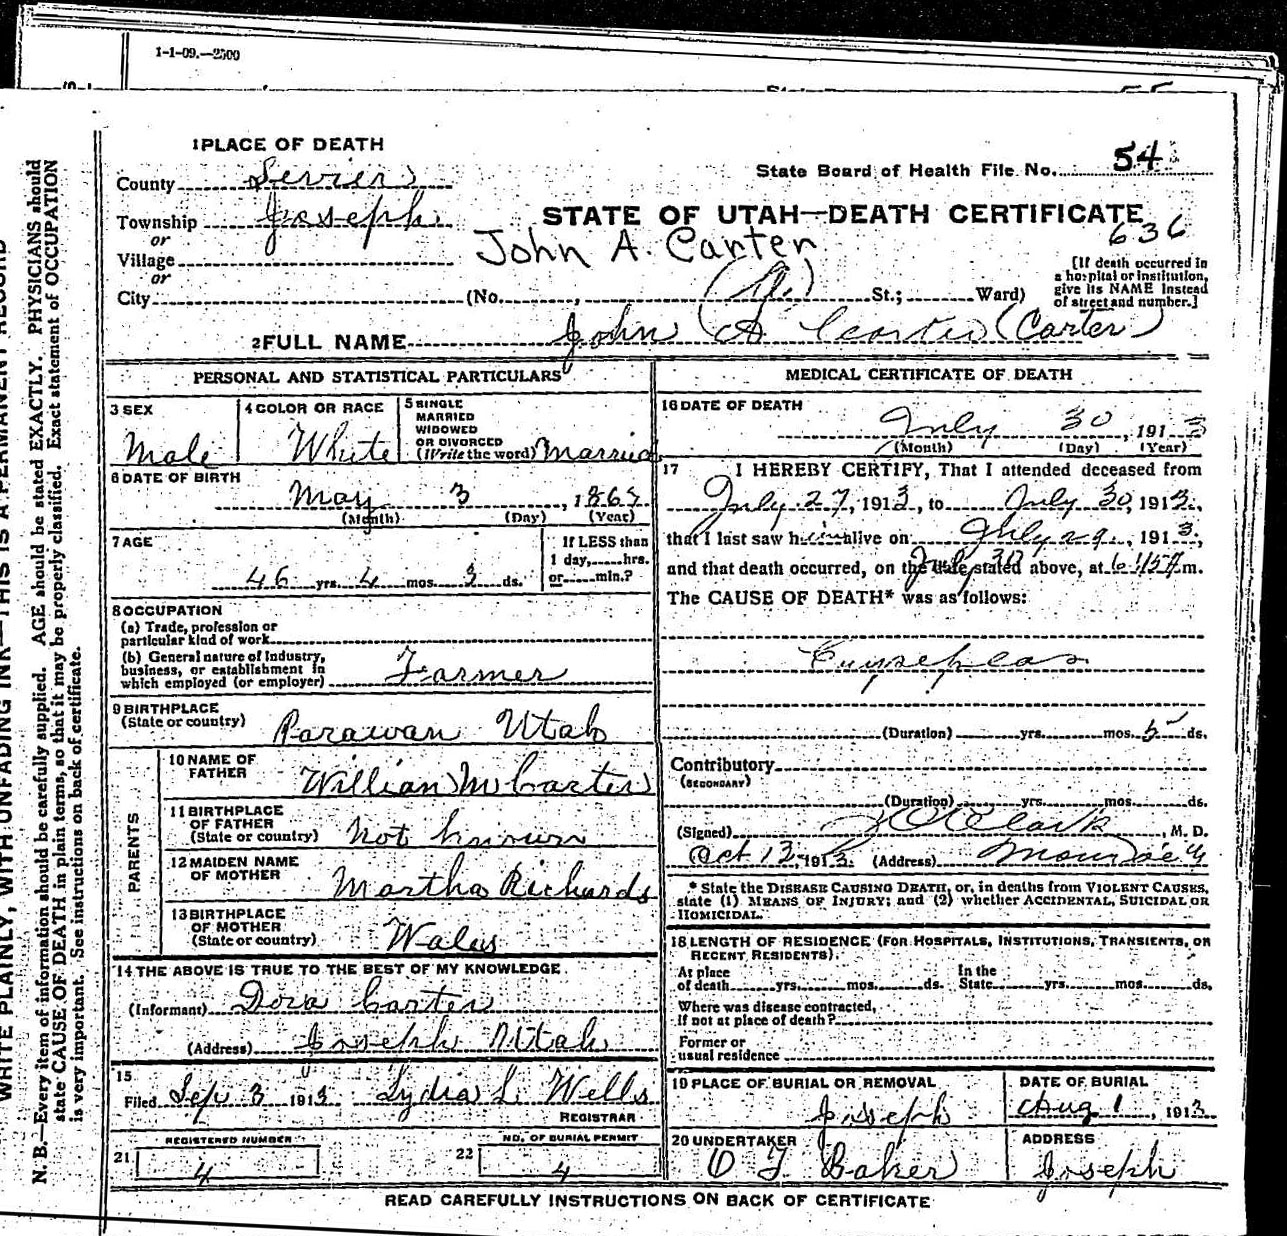 1-1-09.—2500
1 PLACE OF DEATH
County Sevier
State Board of Health File No. 54
Township Joseph
STATE OF UTAH—DEATH CERTIFICATE
636
or
Village
John A. Carter
or
City (No. , (A.) St.; Ward)
[If death occurred in
a hospital or institution,
give its NAME instead
of street and number.]
2 FULL NAME John A Carter (Carter)
PERSONAL AND STATISTICAL PARTICULARS
3 SEX
Male
4 COLOR OR RACE
White
5 SINGLE
MARRIED
WIDOWED
OR DIVORCED
(Write the word) Married
6 DATE OF BIRTH
May 3, 1867
(Month) (Day) (Year)
7 AGE
46 yrs. 4 mos. 3 ds.
If LESS than
1 day, hrs.
or min.?
8 OCCUPATION
(a) Trade, profession or
particular kind of work
(b) General nature of Industry,
business, or establishment in
which employed (or employer) Farmer
9 BIRTHPLACE
(State or country)
Parawan Utah
PARENTS
10 NAME OF
FATHER
William M Carter
11 BIRTHPLACE
OF FATHER
(State or country) Not known
12 MAIDEN NAME
OF MOTHER
Martha Richards
13 BIRTHPLACE
OF MOTHER
(State or country) Wales
14 THE ABOVE IS TRUE TO THE BEST OF MY KNOWLEDGE
(Informant) Dora Carter
(Address) Joseph Utah
15
Filed Sep 3 1913 Lydia L. Wells
REGISTRAR
REGISTERED NUMBER
21 4
NO. OF BURIAL PERMIT
22 4
MEDICAL CERTIFICATE OF DEATH
16 DATE OF DEATH
July 30, 1913
(Month) (Day) (Year)
17 I HEREBY CERTIFY, That I attended deceased from
July 27, 1913, to July 30, 1913,
that I last saw him alive on July 29, 1913,
and that death occurred, on the date stated above, at m.
July 30
The CAUSE OF DEATH* was as follows:
(Duration) yrs. mos. 5 ds.
Contributory
(SECONDARY)
(Duration) yrs. mos. ds.
(Signed) Clark, M. D.
Oct 13, 1913. (Address)
* State the DISEASE CAUSING DEATH, or, in deaths from VIOLENT CAUSES,
state (1) MEANS OF INJURY; and (2) whether ACCIDENTAL, SUICIDAL OR
HOMICIDAL.
18 LENGTH OF RESIDENCE (FOR HOSPITALS, INSTITUTIONS, TRANSIENTS, OR
RECENT RESIDENTS).
At place
of death yrs. mos. ds.
In the
State yrs. mos. ds.
Where was disease contracted,
If not at place of death?
Former or
usual residence
19 PLACE OF BURIAL OR REMOVAL
Joseph
DATE OF BURIAL
Aug 1, 1913
20 UNDERTAKER
O F Baker
ADDRESS
Joseph
READ CAREFULLY INSTRUCTIONS ON BACK OF CERTIFICATE
WRITE PLAINLY, WITH UNFADING INK—THIS IS A PERMANENT RECORD
N. B.—Every item of information should be carefully supplied. AGE should be stated EXACTLY. PHYSICIANS should
state CAUSE OF DEATH in plain terms, so that it may be properly classified. Exact statement of OCCUPATION
is very important. See instructions on back of certificate.